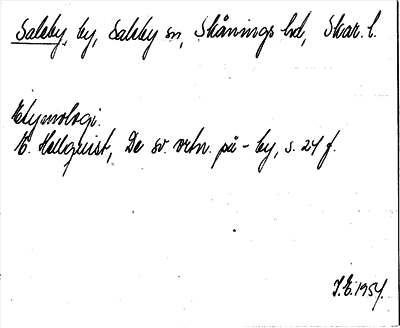 Saleby, by, Saleby sn, Skånings hd, Skar. l.
Etymologi.
E. Hellquist, De sv. ortn. på -by, s. 24 f.
J.E. 1954.